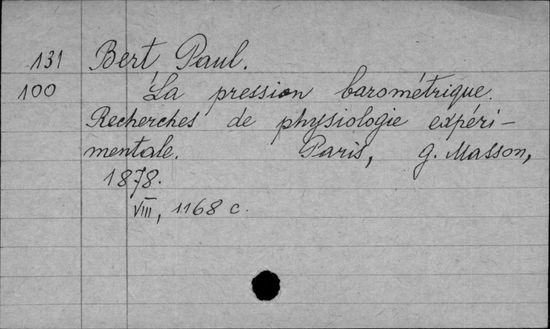 131 Bert Paul.
100 La pression barométrique.
Recherches de physiologie expéri-
mentale. Paris, G. Masson,
1878.
VIII, 1168 c.